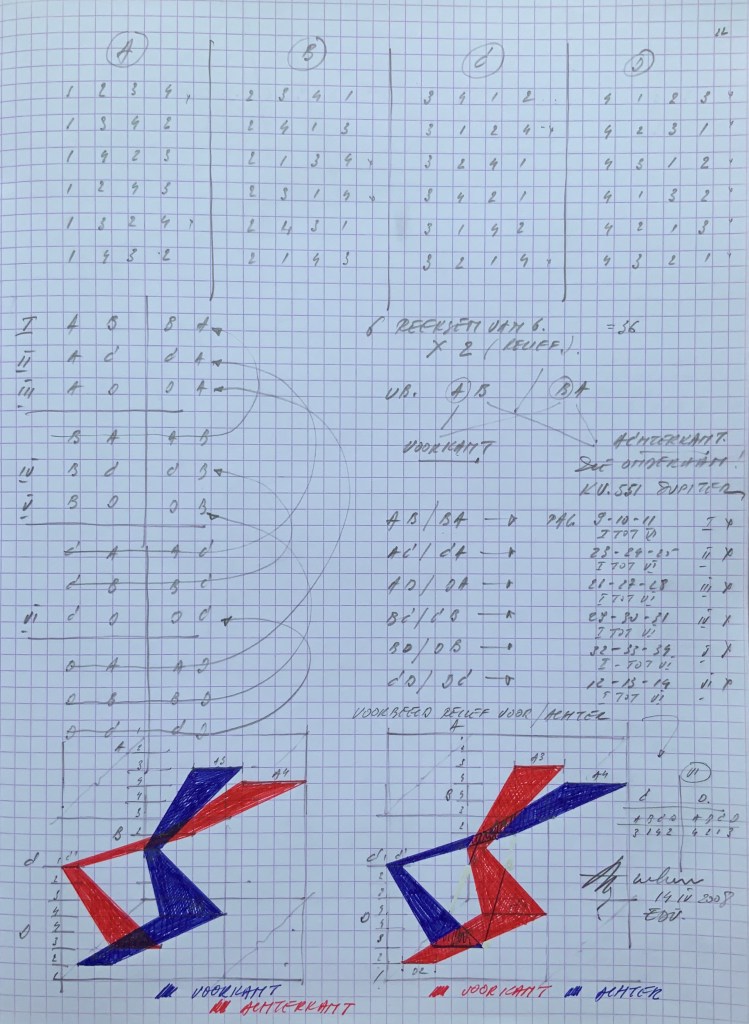 12
A B C D
1 2 3 4 , 2 3 4 1 3 4 1 2 . 4 1 2 3 "
1 3 4 2 2 4 1 3 3 1 2 4 " 4 2 3 1 "
1 4 2 3 2 1 3 4 , 3 2 4 1 4 3 1 2 "
1 2 4 3 2 3 1 4 , 3 4 2 1 4 1 3 2 "
1 3 2 4 , 2 4 3 1 3 1 4 2 4 2 1 3 "
1 4 3 2 2 1 4 3 3 2 1 4 , 4 3 2 1 "
I A B B A
II A C C A
III A D D A
B A A B
IV B C C B
V B D D B
C A A C
C B B C
VI C D D C
D A A D
D B B D
D C C D
6 REEKSEN VAN 6. = 36
X 2 (RELIEF).
VB. A B B A
VOORKANT
ACHTERKANT.
ZIE ONDERAAN!
KV. 551 JUPITER
AB/BA → PAG 9-10-11 I X
I TOT VI
AC/CA → 23-24-25 II X
I TOT VI
AD/DA → 26-27-28 III X
I TOT VI
BC/CB → 29-30-31 IV X
I TOT VI
BD/DB → 32-33-34 V X
I - TOT VI
CD/DC → 12-13-14 VI X
I TOT VI
VOORBEELD RELIEF VOOR/ACHTER
A
A3
A4
B
C
D
A
A3
A4
B
C
D
D2
VI
C D.
A B C D A B C D
3 1 4 2 4 2 1 3
14 IV 2008
EDV.
VOORKANT
ACHTERKANT
VOORKANT ACHTER